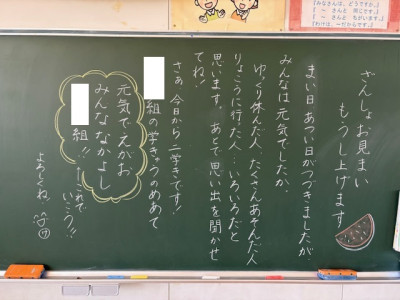 ざんしょお見まい
もうし上げます
まい日あつい日がつづきましたが
みんなは元気でしたか。
ゆっくり休んだ人、たくさんあそんだ人
りょこうに行った人…いろいろだと
思います。あとで思い出を聞かせ
てね!
さあ、今日から二学きです!
組の学きゅうのめあて
元気でえがお
みんななかよし
組!!
これで
いこう!!
よろしくね!